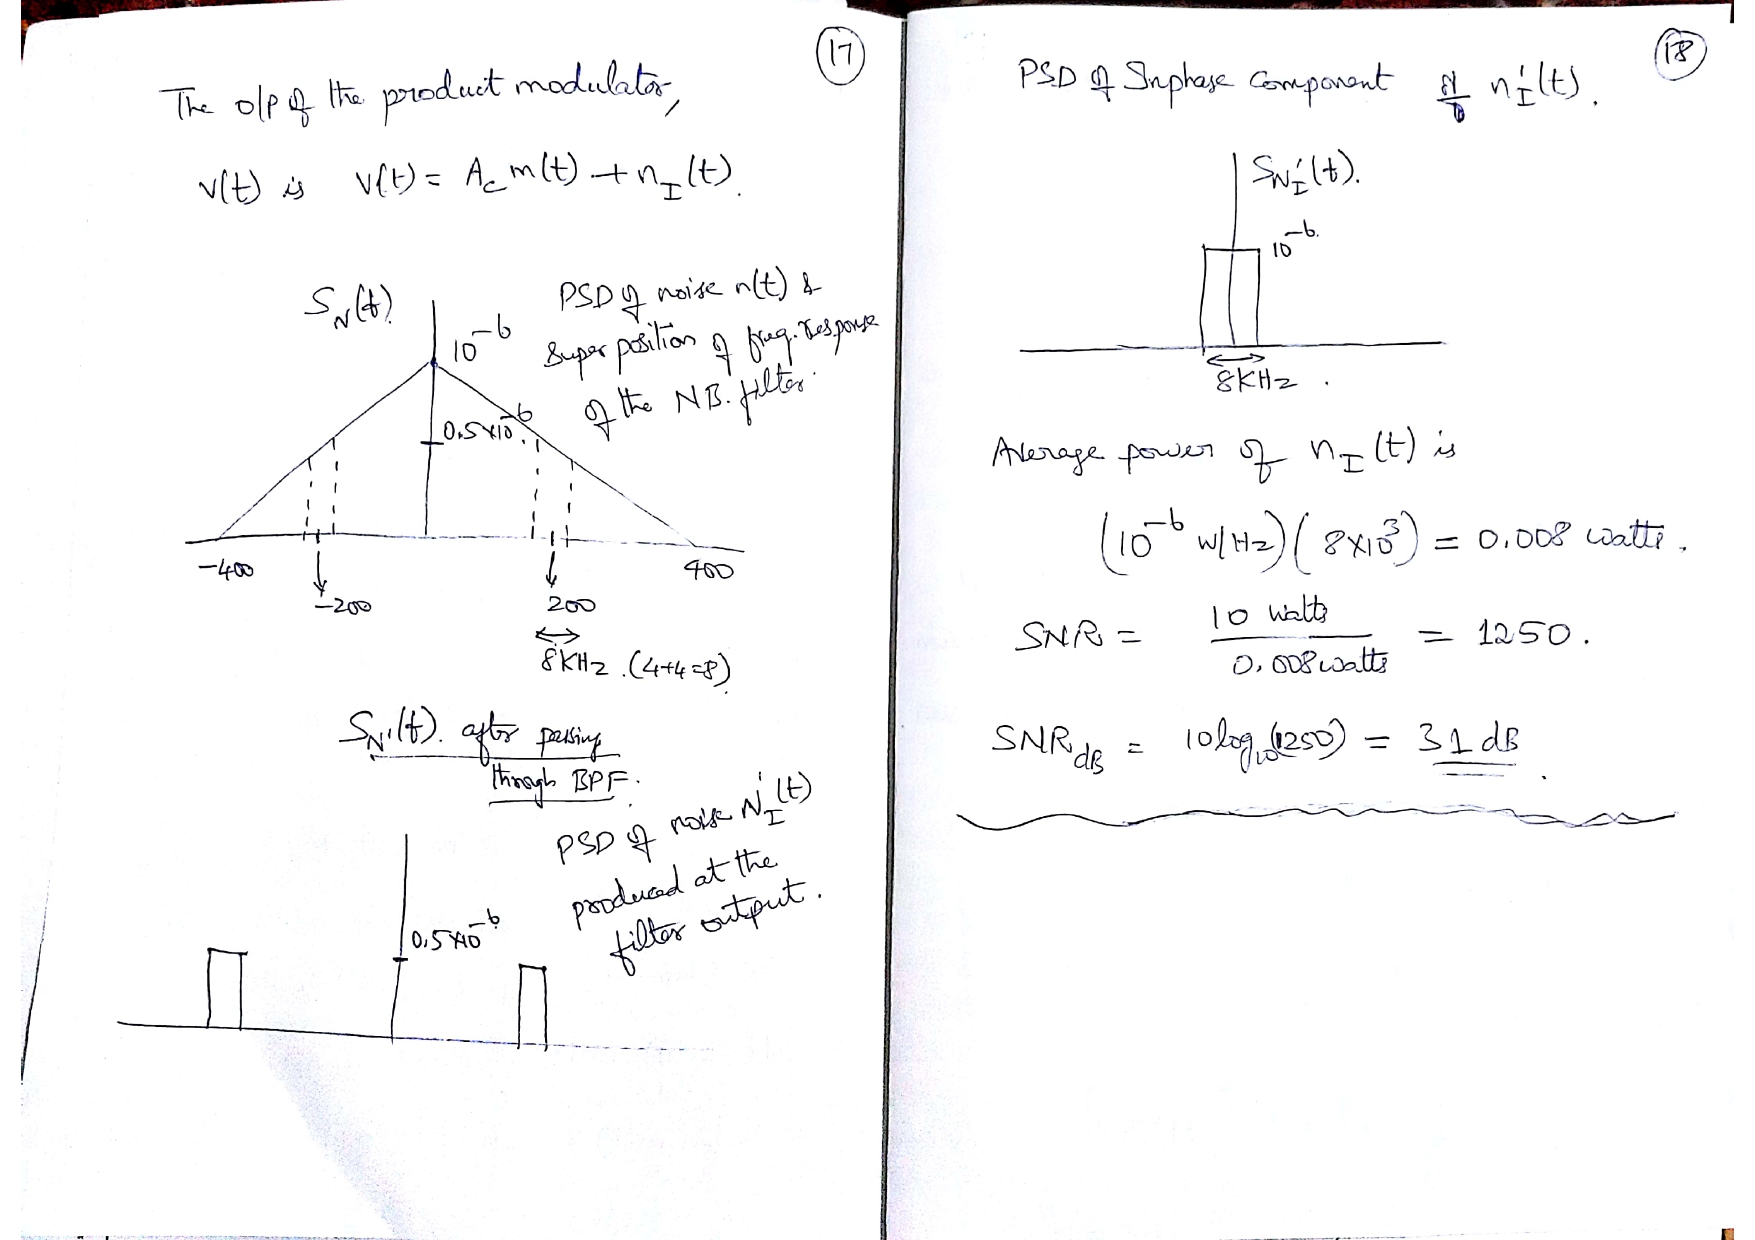 17
The o/p of the product modulator,
v(t) is v(t) = A_c m(t) + n_I(t).
S_N(f)
PSD of noise n(t) &
Super position of freq. response
of the NB. filter.
10^-6
0.5×10^-6
-400
-200
200
400
8KHz. (4+4=8)
S_N'(f). after passing
through BPF.
PSD of noise N_I'(t)
produced at the
filter output.
0.5×10^-6
18
PSD of Inphase Component of n_I'(t).
S_N_I'(f).
10^-6.
8KHz.
Average power of n_I(t) is
(10^-6 W/Hz)(8×10^3) = 0.008 watts.
SNR = 10 watts / 0.008 watts = 1250.
SNR_dB = 10log_10(1250) = 31 dB.